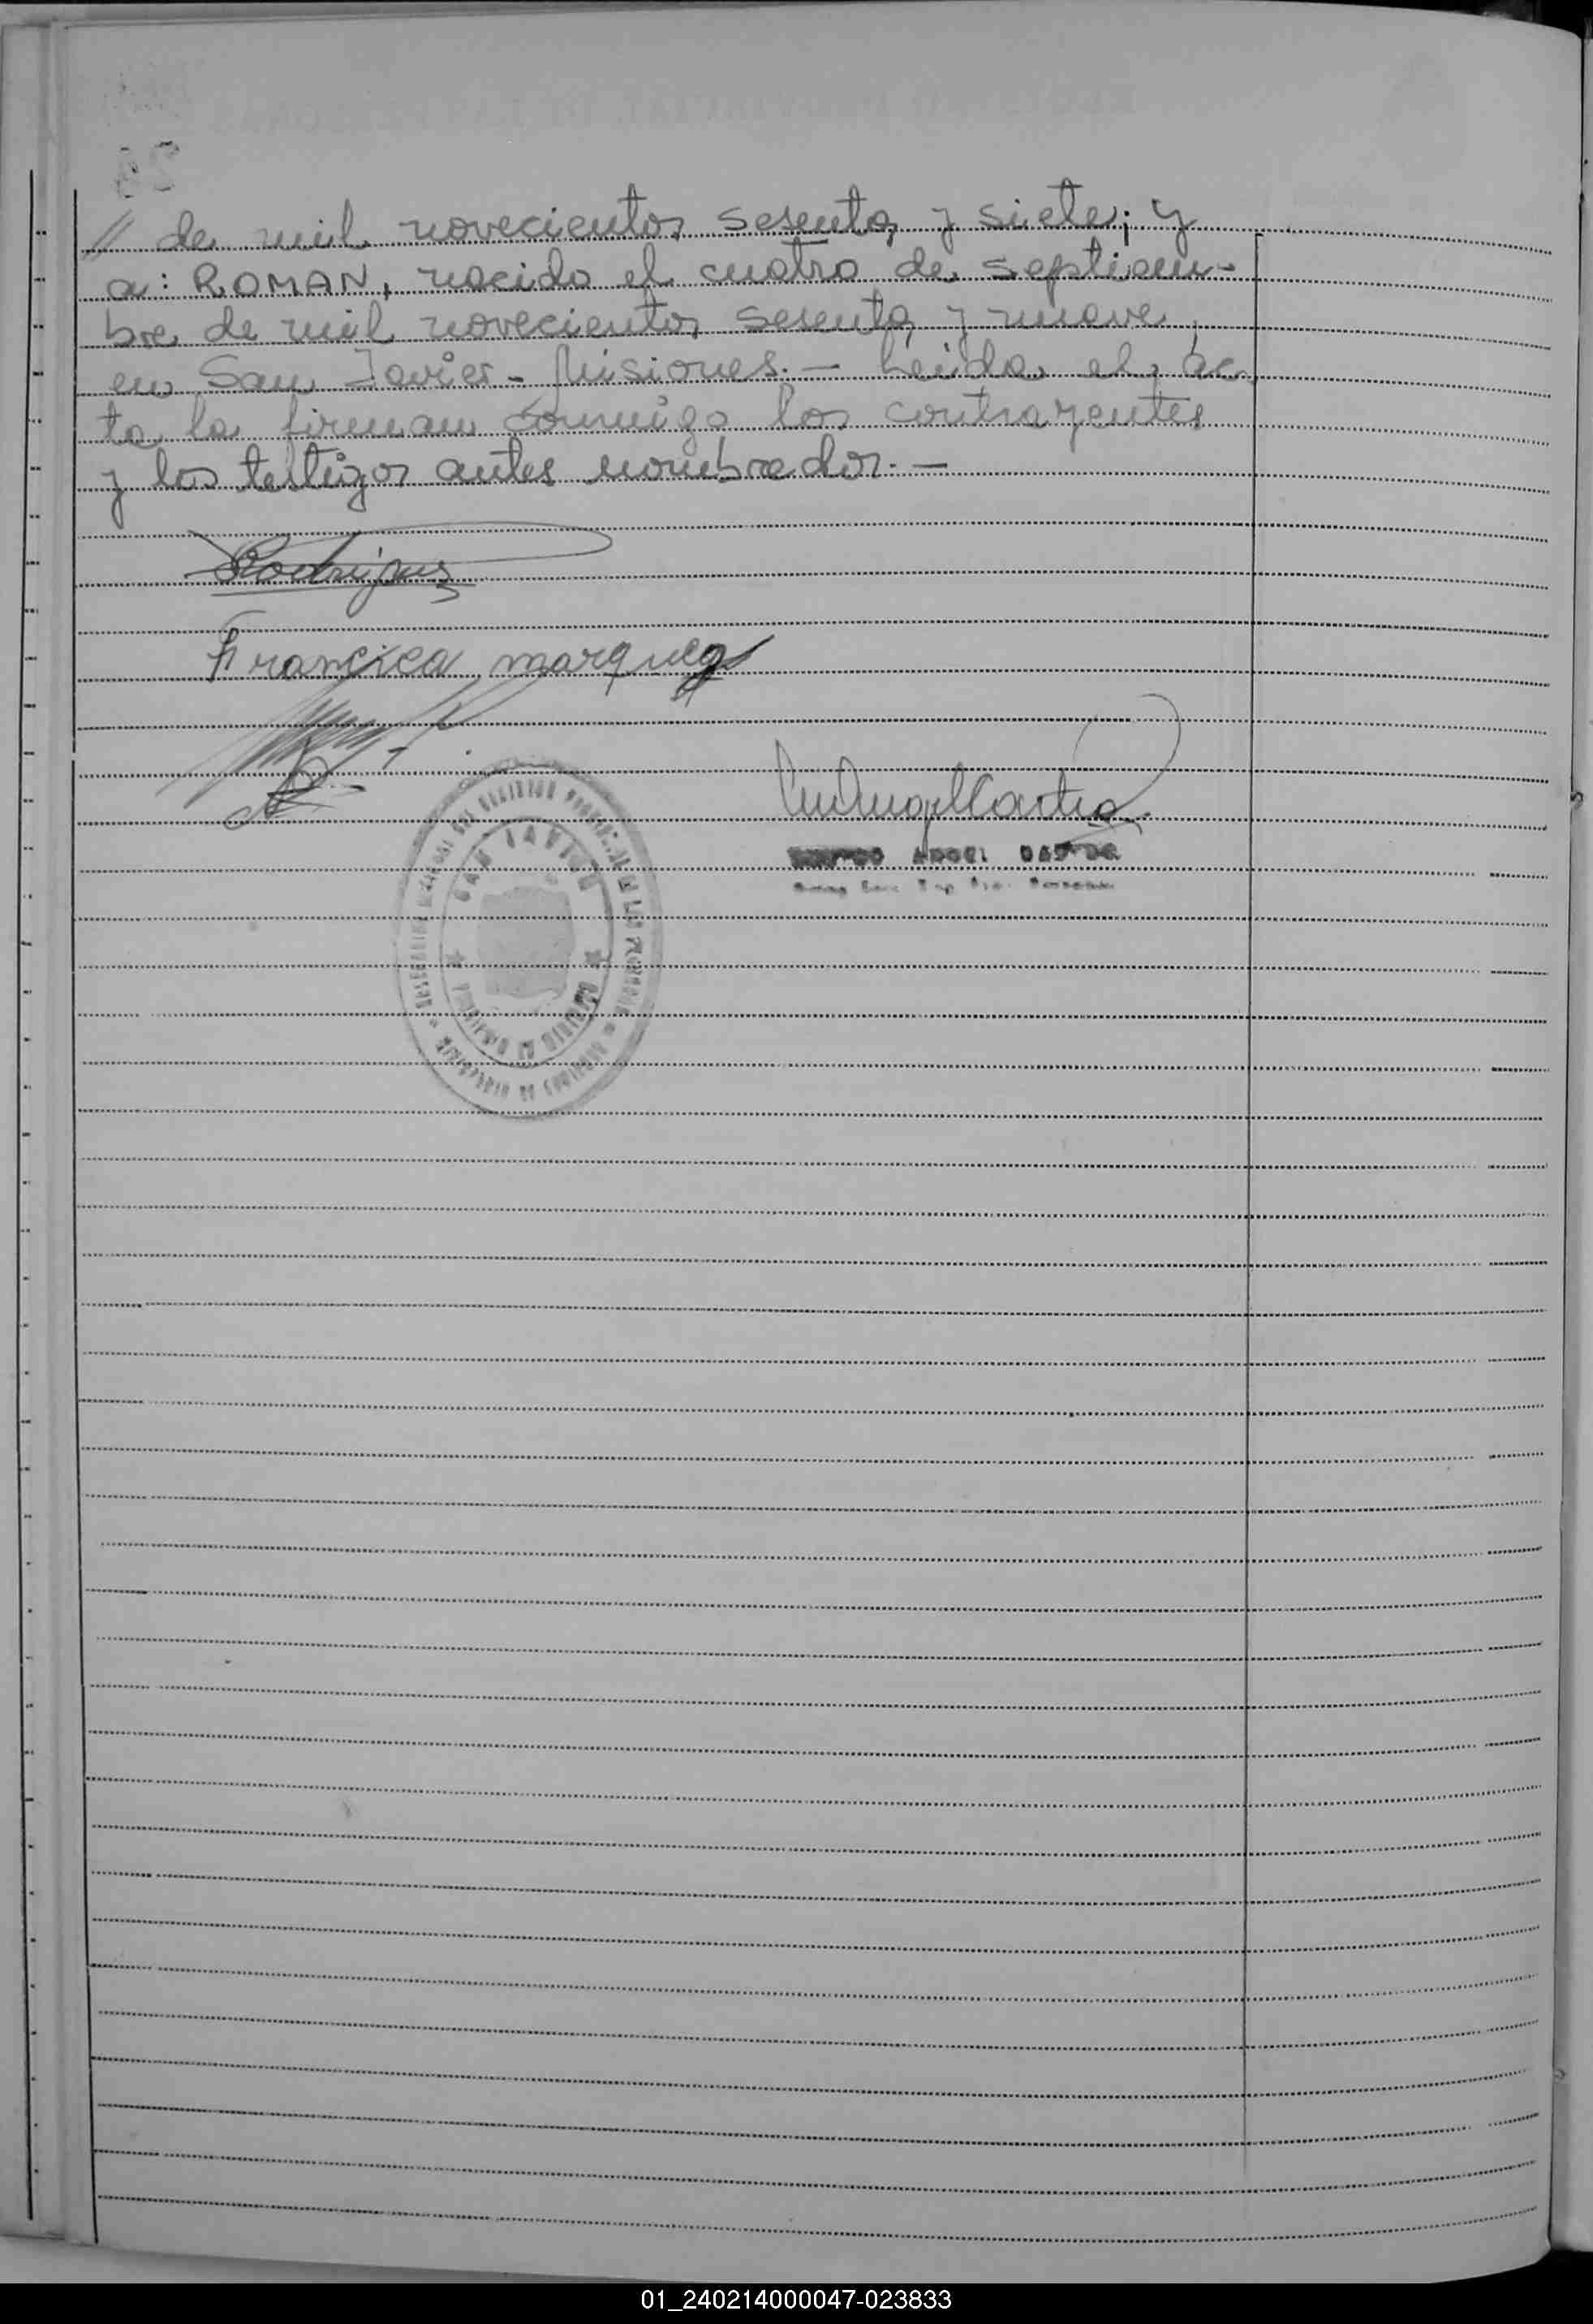 // de mil novecientos sesenta y siete; y
a: ROMAN, nacido el cuatro de septiem-
bre de mil novecientos sesenta y nueve,
en San Javier - Misiones. — Leída el ac
ta la firman conmigo los contrayentes
y los testigos antes nombrados. —
Rodriguez
Francisca marquez
SAN JAVIER
PROVINCIA DE MISIONES
01_240214000047-023833